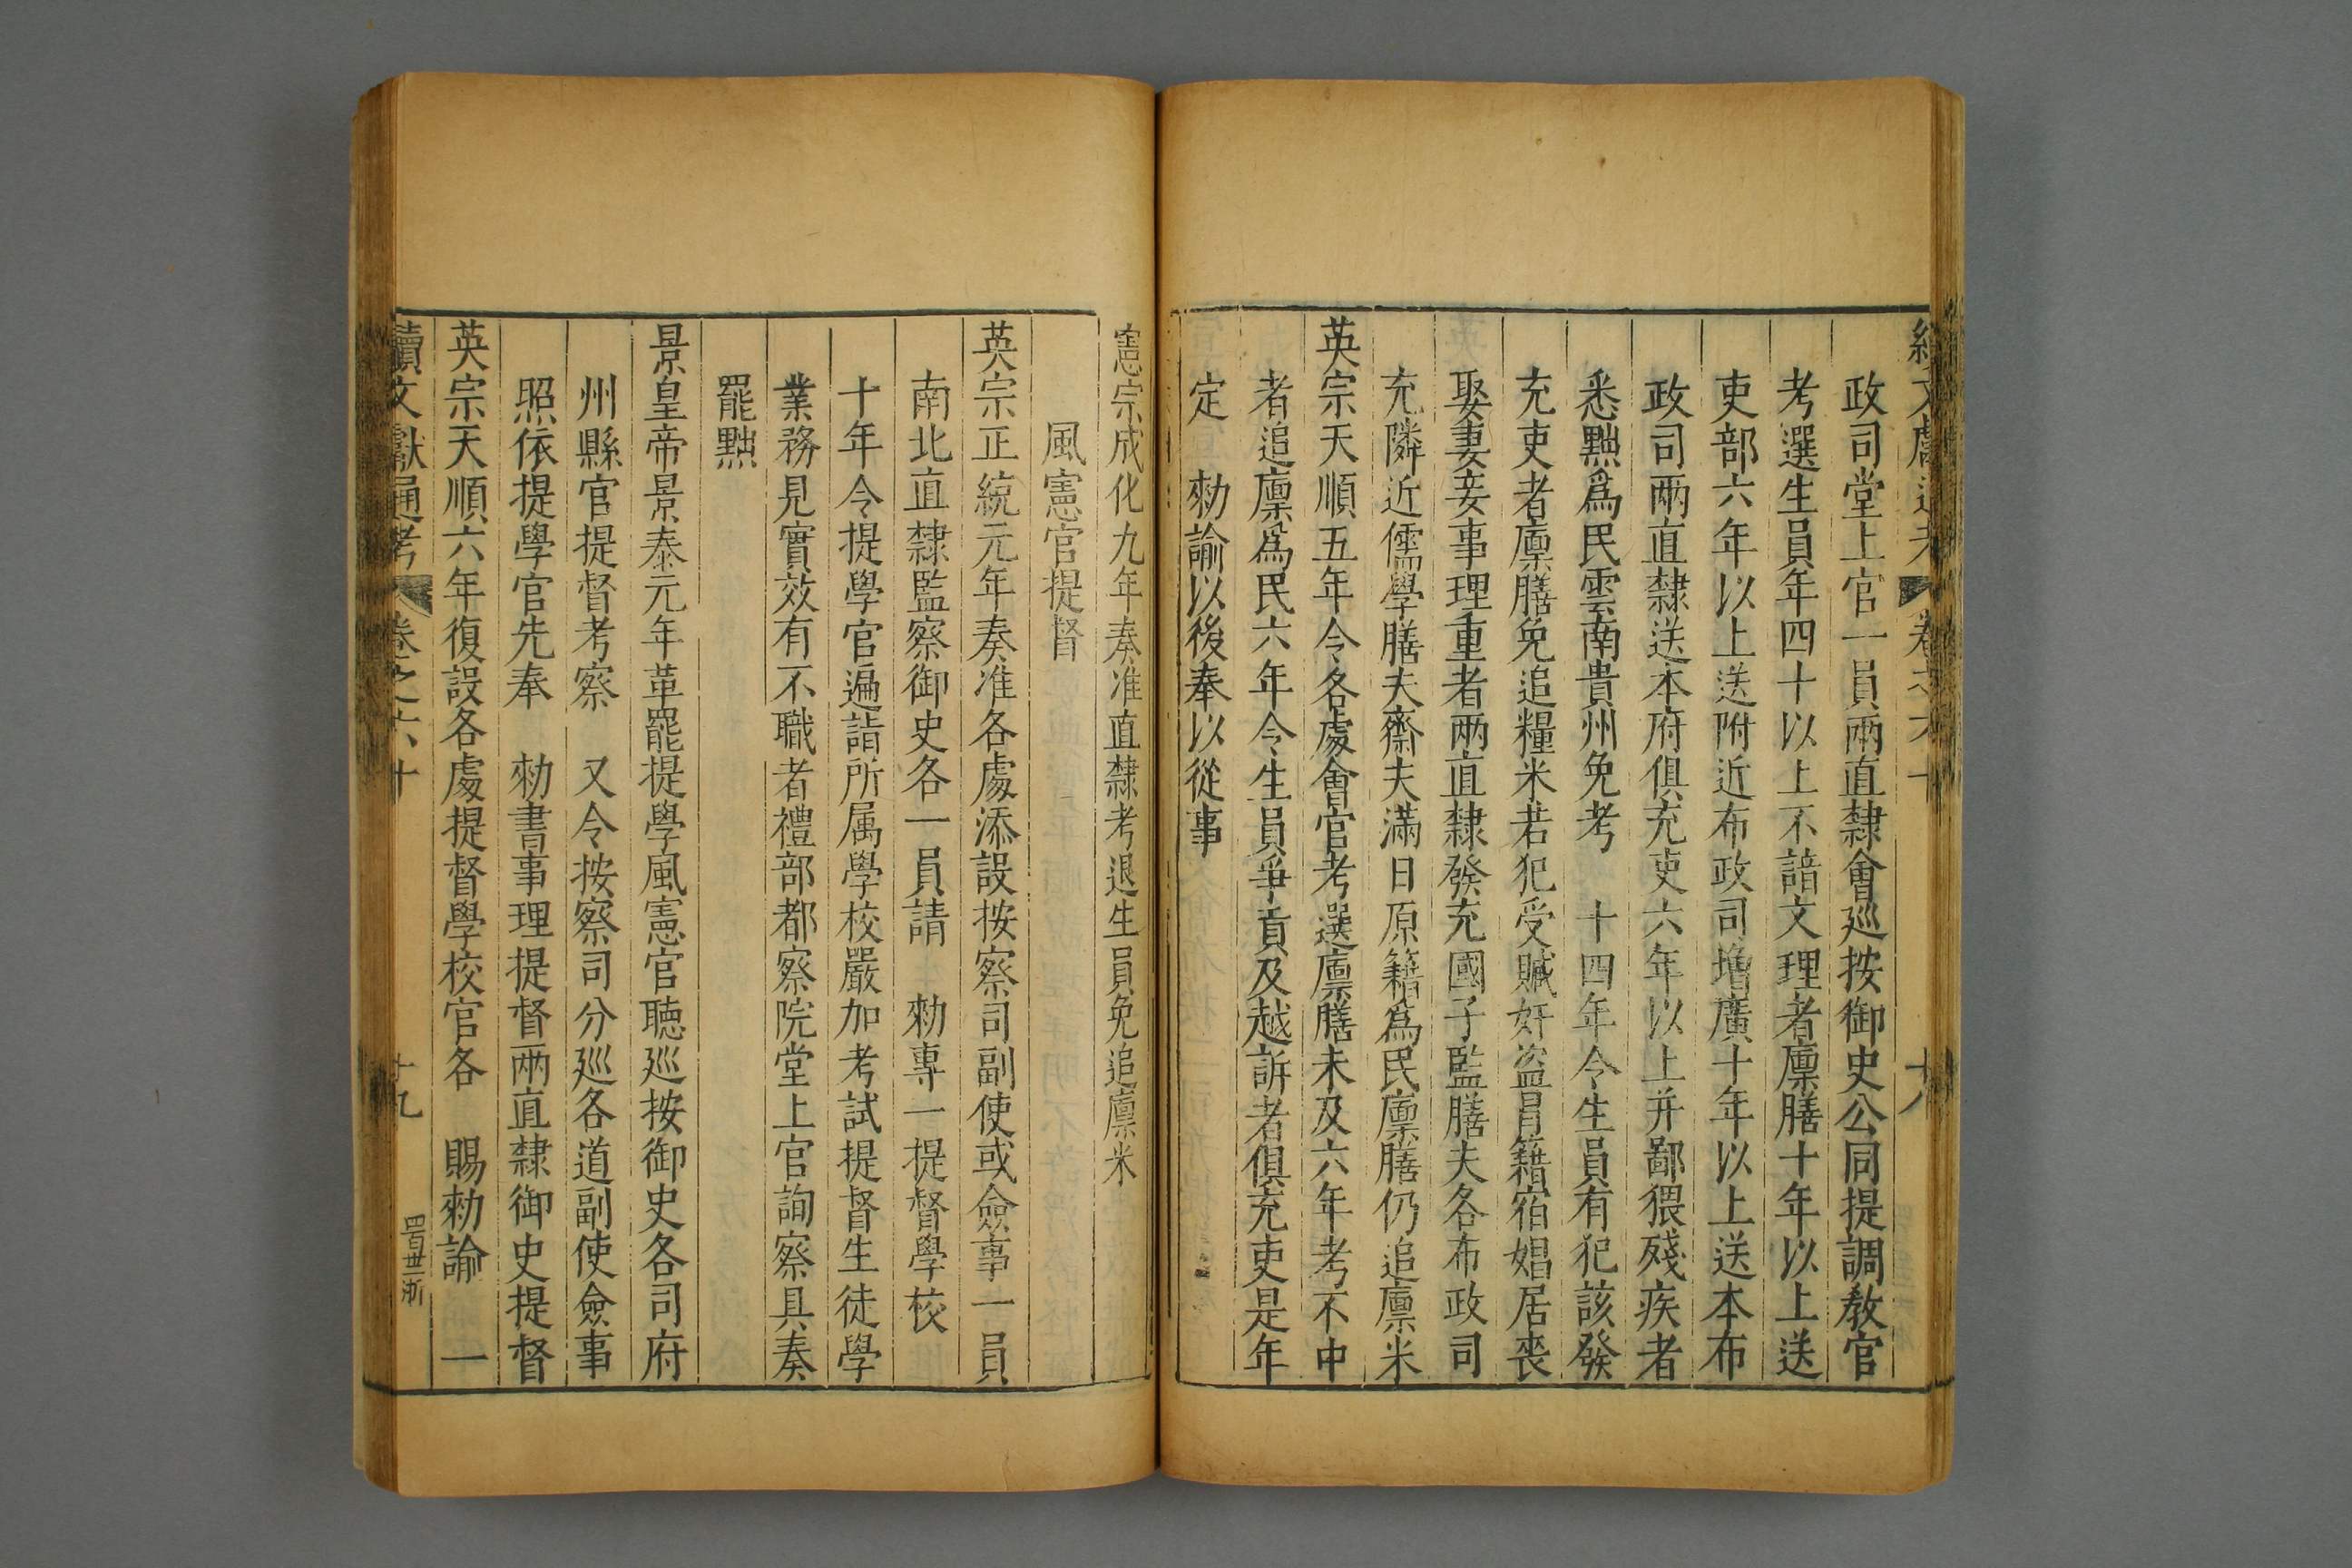 政司堂上官一員兩直隸會巡按御史公同提調教官
考選生員年四十以上不諳文理者廪膳十年以上送
吏部六年以上送附近布政司增廣十年以上送本布
政司兩直隸送本府俱充吏六年以上并鄙猥殘疾者
悉黜爲民雲南貴州免考　十四年令生員有犯該發
充吏者廪膳免追糧米若犯受贓奸盗冒籍宿娼居喪
娶妻妾事理重者兩直隸發充國子監膳夫各布政司
充隣近儒學膳夫齋夫滿日原籍爲民廪膳仍追廪米
英宗天順五年令各處會官考選廪膳未及六年考不中
者追廪爲民六年令生員爭貢及越訴者俱充吏是年
定　勑諭以後奉以從事
憲宗成化九年奏准直隸考退生員免追廪米
風憲官提督
英宗正統元年奏准各處添設按察司副使或僉事一員
南北直隸監察御史各一員請　勑專一提督學校
十年令提學官遍詣所属學校嚴加考試提督生徒學
業務見實效有不職者禮部都察院堂上官詢察具奏
罷黜
景皇帝景泰元年革罷提學風憲官聴巡按御史各司府
州縣官提督考察　又令按察司分巡各道副使僉事
照依提學官先奉　勑書事理提督兩直隸御史提督
英宗天順六年復設各處提督學校官各　賜勑諭　一
續文獻通考　卷之六十　十九